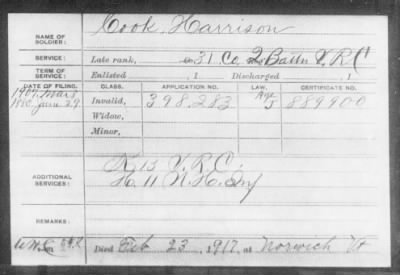 NAME OF SOLDIER: Cook, Harrison
SERVICE: Late rank, 31 Co. 2 Battn V.R.C.
TERM OF SERVICE: Enlisted , 1 Discharged , 1
DATE OF FILING. CLASS. APPLICATION NO. LAW. CERTIFICATE NO.
1907, Mar 5 Age
1880, June 29 Invalid, 398,283 J 889900
Widow,
Minor,
K 13 V.R.C.
ADDITIONAL SERVICES: H 11 N.H. Inf
REMARKS:
Died Feb 23, 1917, at Norwich Vt